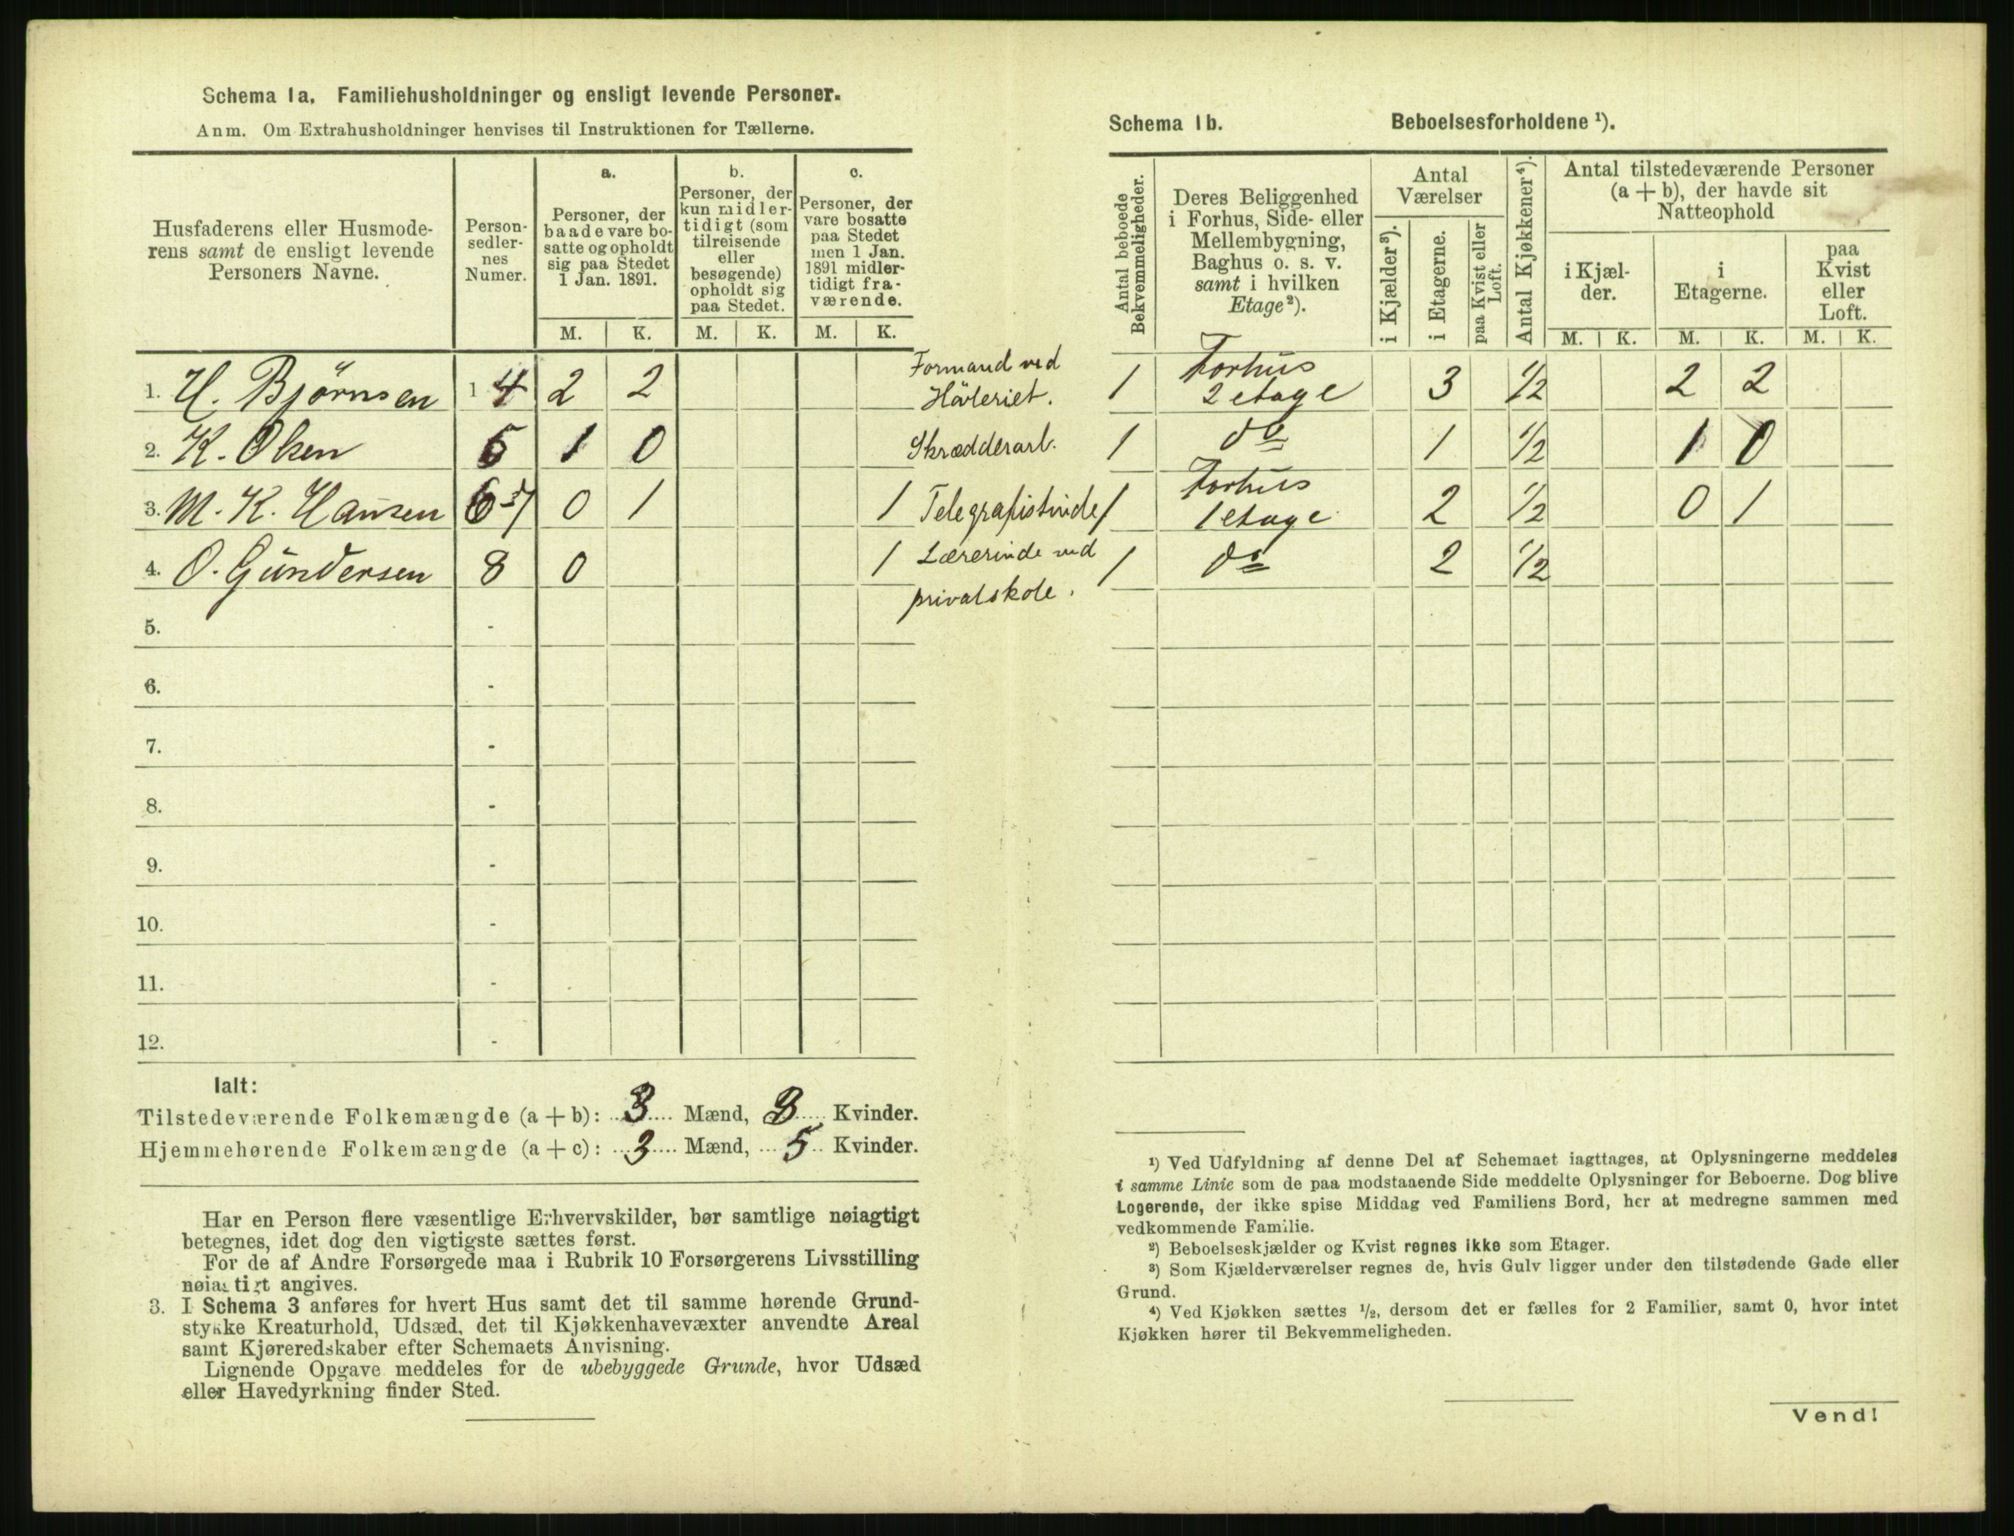 Schema 1a. Familiehusholdninger og ensligt levende Personer.
Anm. Om Extrahusholdninger henvises til Instruktionen for Tællerne.
Husfaderens eller Husmode-
rens samt de ensligt levende
Personers Navne.
Person-
sedler-
nes
Numer.
a.
Personer, der
baade vare bo-
satte og opholdt
sig paa Stedet
1 Jan. 1891.
b.
Personer, der
kun midler-
tidigt (som
tilreisende
eller
besøgende)
opholdt sig
paa Stedet.
c.
Personer, der
vare bosatte
paa Stedet
men 1 Jan.
1891 midler-
tidigt fra-
værende.
M. K. M. K. M. K.
1. H. Bjørnsen 1 4 2 2 Formand ved
2. K. Olsen 5 1 0 Skrædderarb.
3. M. K. Hansen 6 7 0 1 1 Telegrafistinde
4. O. Gundersen 8 0 1 Lærerinde ved
privatskole.
5. -
6. -
7. -
8. -
9. -
10. -
11. -
12. -
Ialt:
Tilstedeværende Folkemængde (a + b): 3 Mænd, 3 Kvinder.
Hjemmehørende Folkemængde (a + c): 3 Mænd, 5 Kvinder.
Har en Person flere væsentlige Erhvervskilder, bør samtlige nøiagtigt
betegnes, idet dog den vigtigste sættes først.
For de af Andre Forsørgede maa i Rubrik 10 Forsørgerens Livsstilling
nøiagtigt angives.
3. I Schema 3 anføres for hvert Hus samt det til samme hørende Grund-
stykke Kreaturhold, Udsæd, det til Kjøkkenhavevæxter anvendte Areal
samt Kjøreredskaber efter Schemaets Anvisning.
Lignende Opgave meddeles for de ubebyggede Grunde, hvor Udsæd
eller Havedyrkning finder Sted.
Schema 1b. Beboelsesforholdene ¹).
Antal beboede
Bekvemmeligheder.
Deres Beliggenhed
i Forhus, Side- eller
Mellembygning,
Baghus o. s. v.
samt i hvilken
Etage²).
Antal
Værelser
i Kjælder³).
i Etagerne.
paa Kvist eller
Loft.
Antal Kjøkkener⁴).
Antal tilstedeværende Personer
(a + b), der havde sit
Natteophold
i Kjæl-
der.
i
Etagerne.
paa
Kvist
eller
Loft.
M. K. M. K. M. K.
1 Forhus
2 etage 3 ½ 2 2
1 do 1 ½ 1 0
1 Forhus
1 etage 2 ½ 0 1
1 do 2 ½
¹) Ved Udfyldning af denne Del af Schemaet iagttages, at Oplysningerne meddeles
i samme Linie som de paa modstaaende Side meddelte Oplysninger for Beboerne. Dog blive
Logerende, der ikke spise Middag ved Familiens Bord, her at medregne sammen med
vedkommende Familie.
²) Beboelseskjælder og Kvist regnes ikke som Etager.
³) Som Kjælderværelser regnes de, hvis Gulv ligger under den tilstødende Gade eller
Grund.
⁴) Ved Kjøkken sættes ½, dersom det er fælles for 2 Familier, samt 0, hvor intet
Kjøkken hører til Bekvemmeligheden.
Vend!